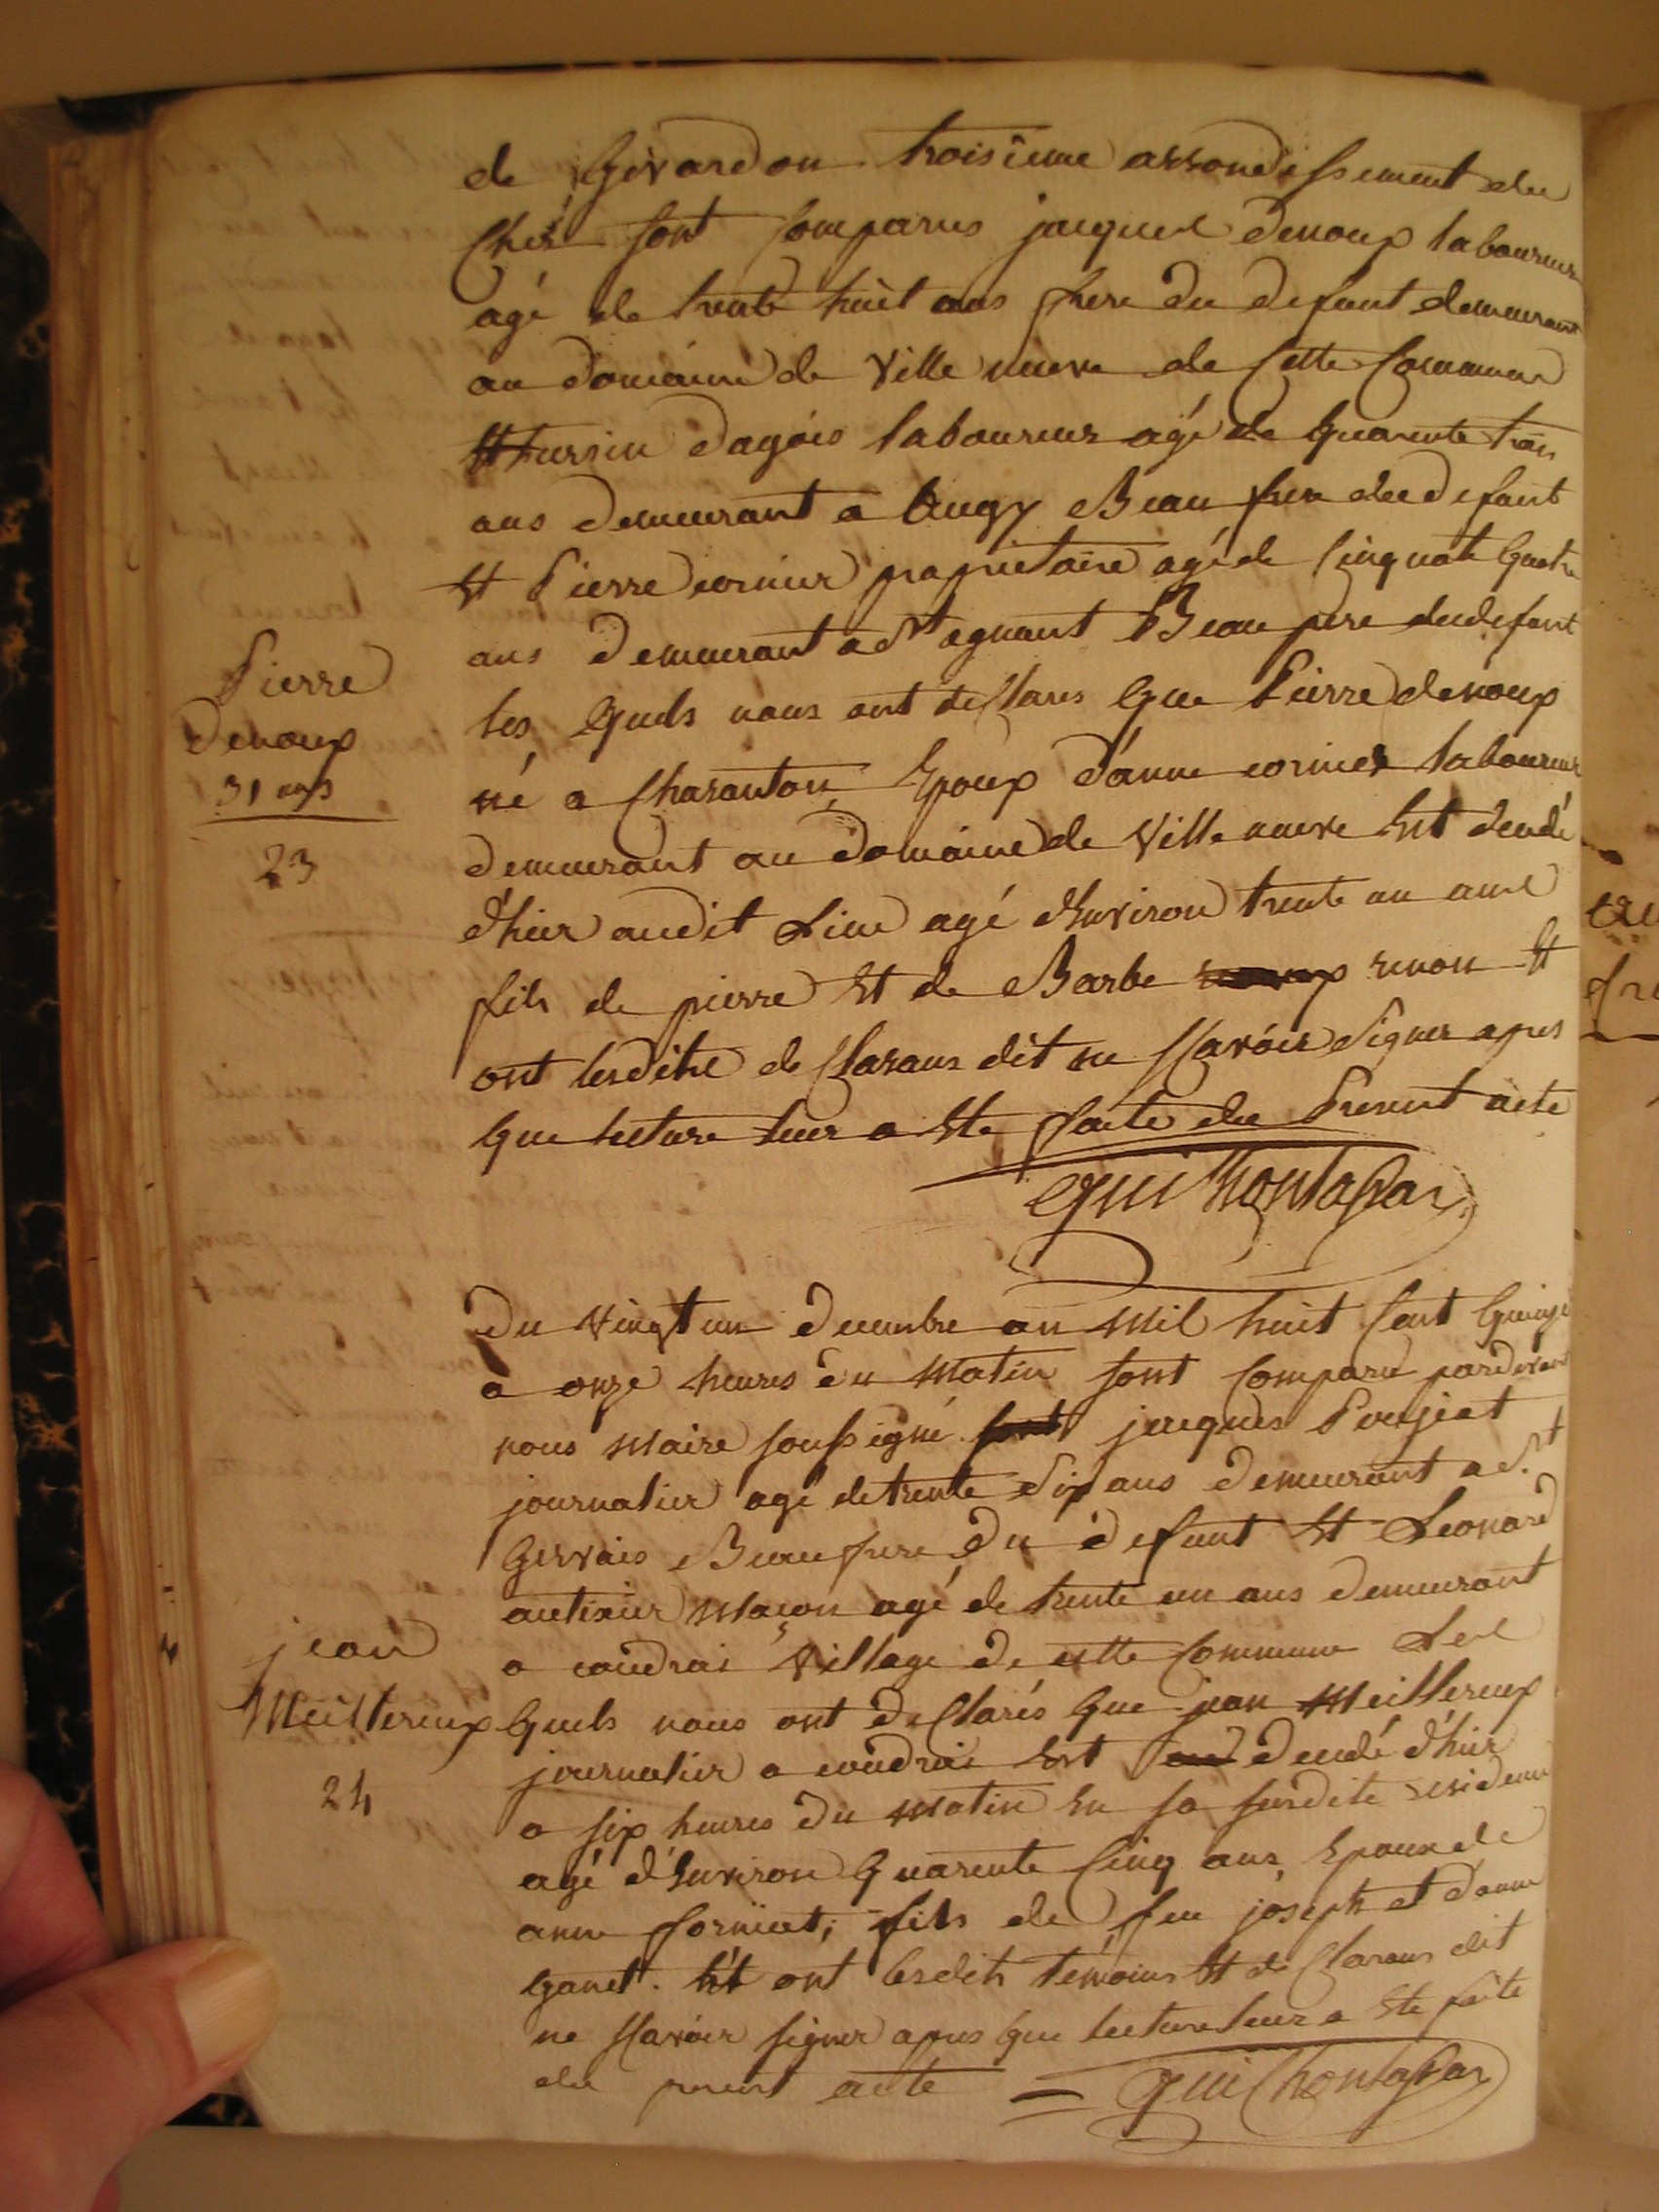 de Givardon troisieme arrondissement du
Cher sont Comparus jacques denoux laboureur
agé de trente huit ans frere du defunt demeurant
au domaine de Ville neuve de Cette Commune
Et Fursin dagois laboureur agé de Quarente trois
ans demeurant a Augy Beau frere dudefunt
Et Pierre cornier proprietaire agé de Cinquate Quatre
ans demeurant a St agnant Beau pere dudefunt
les Quels nous ont declares Que Pierre denoux
né a Charanton Epoux d'anne cornier laboureur
demeurant au domaine de Ville neuve Est décédé
d'hier audit Lieu agé d'Environ trente un ans
fils de pierre Et de Barbe renon Et
ont lesdits de Clarans dit ne scavoir Signer apres
Que lecture leur a Ete faite du Present acte
Pierre
denoux
31 ans
23
du vingt un decembre an mil huit Cent Quinze
a onze heures du matin sont Comparu pardevant
nous maire soussigné sont jacques Poujeat
journalier agé de trente Six ans demeurant a St
Gervais Beaufrere du defunt Et Leonard
autixier maçon agé de trente un ans demeurant
a coudrai Village de cette Commune Les
Quels nous ont declarés Que jean Meillereux
journalier a coudrai Est décédé d'hier
a six heures du matin En sa susdite residence
agé d'Environ Quarente Cinq ans Epoux de
anne forniat, fils de feu joseph et d'anne
Ganet. Et ont lesdits témoins Et de Clarans dit
ne scavoir signer apres Que lecture leur a Ete faite
du present acte =
jean
Meillereux
24